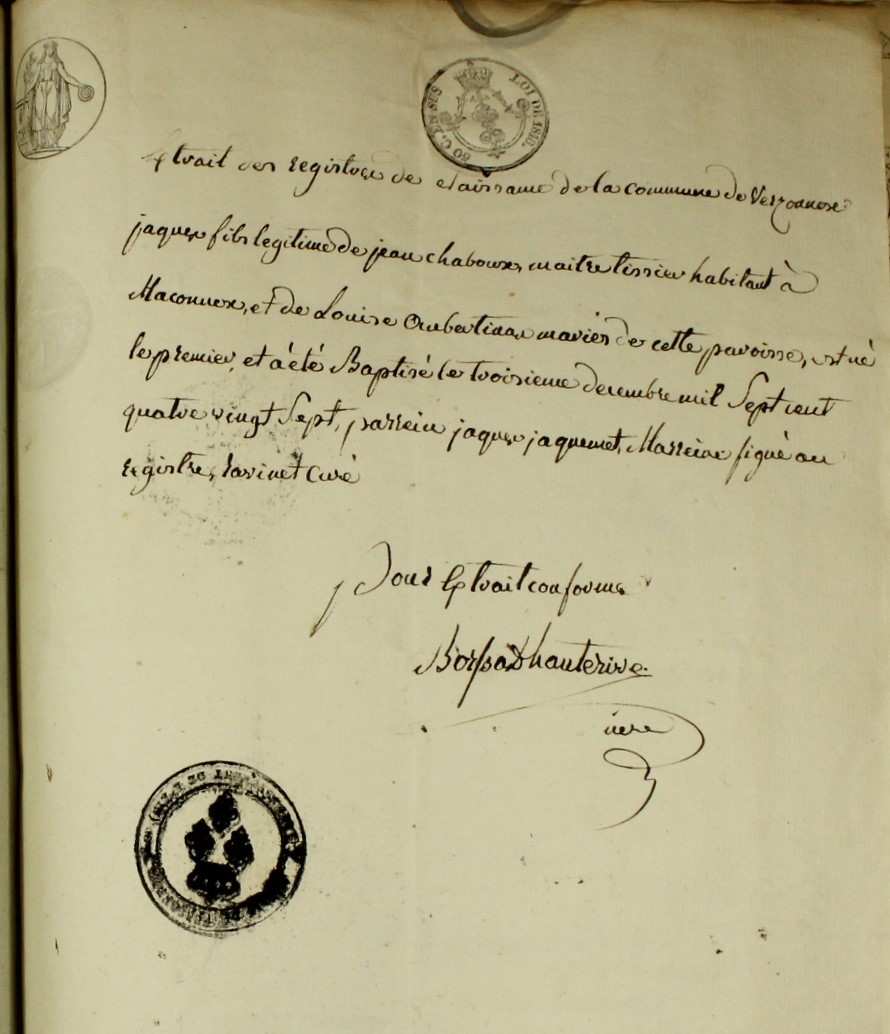 LOI DE 1816.
Extrait des registres de naissance de la commune de Verzonnex
jaques fils legitime de jean chaboux, maitre tissier habitant à
Maconnex, et de Louise mariés de cette paroisse, est né
le premier, et à été Baptisé le troisieme decembre mil Sept cent
quatre vingt Sept, parrein jaques jaquemet, Marreine signé au
registre, curé
pour Extrait conforme
Dhauterive